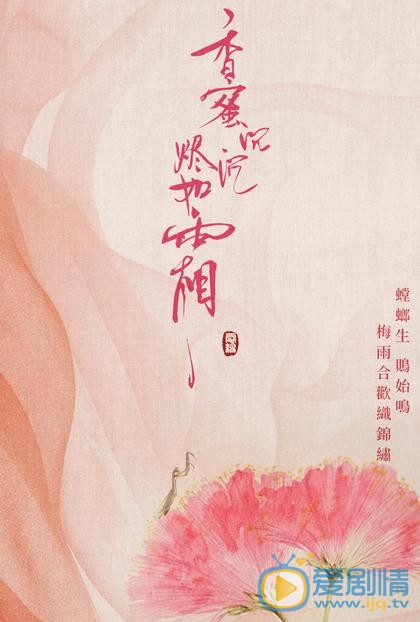 香蜜沉沉
烬如霜
螳螂生 鵙始鳴
梅雨合歡織錦繡
爱剧情
www.ijq.tv